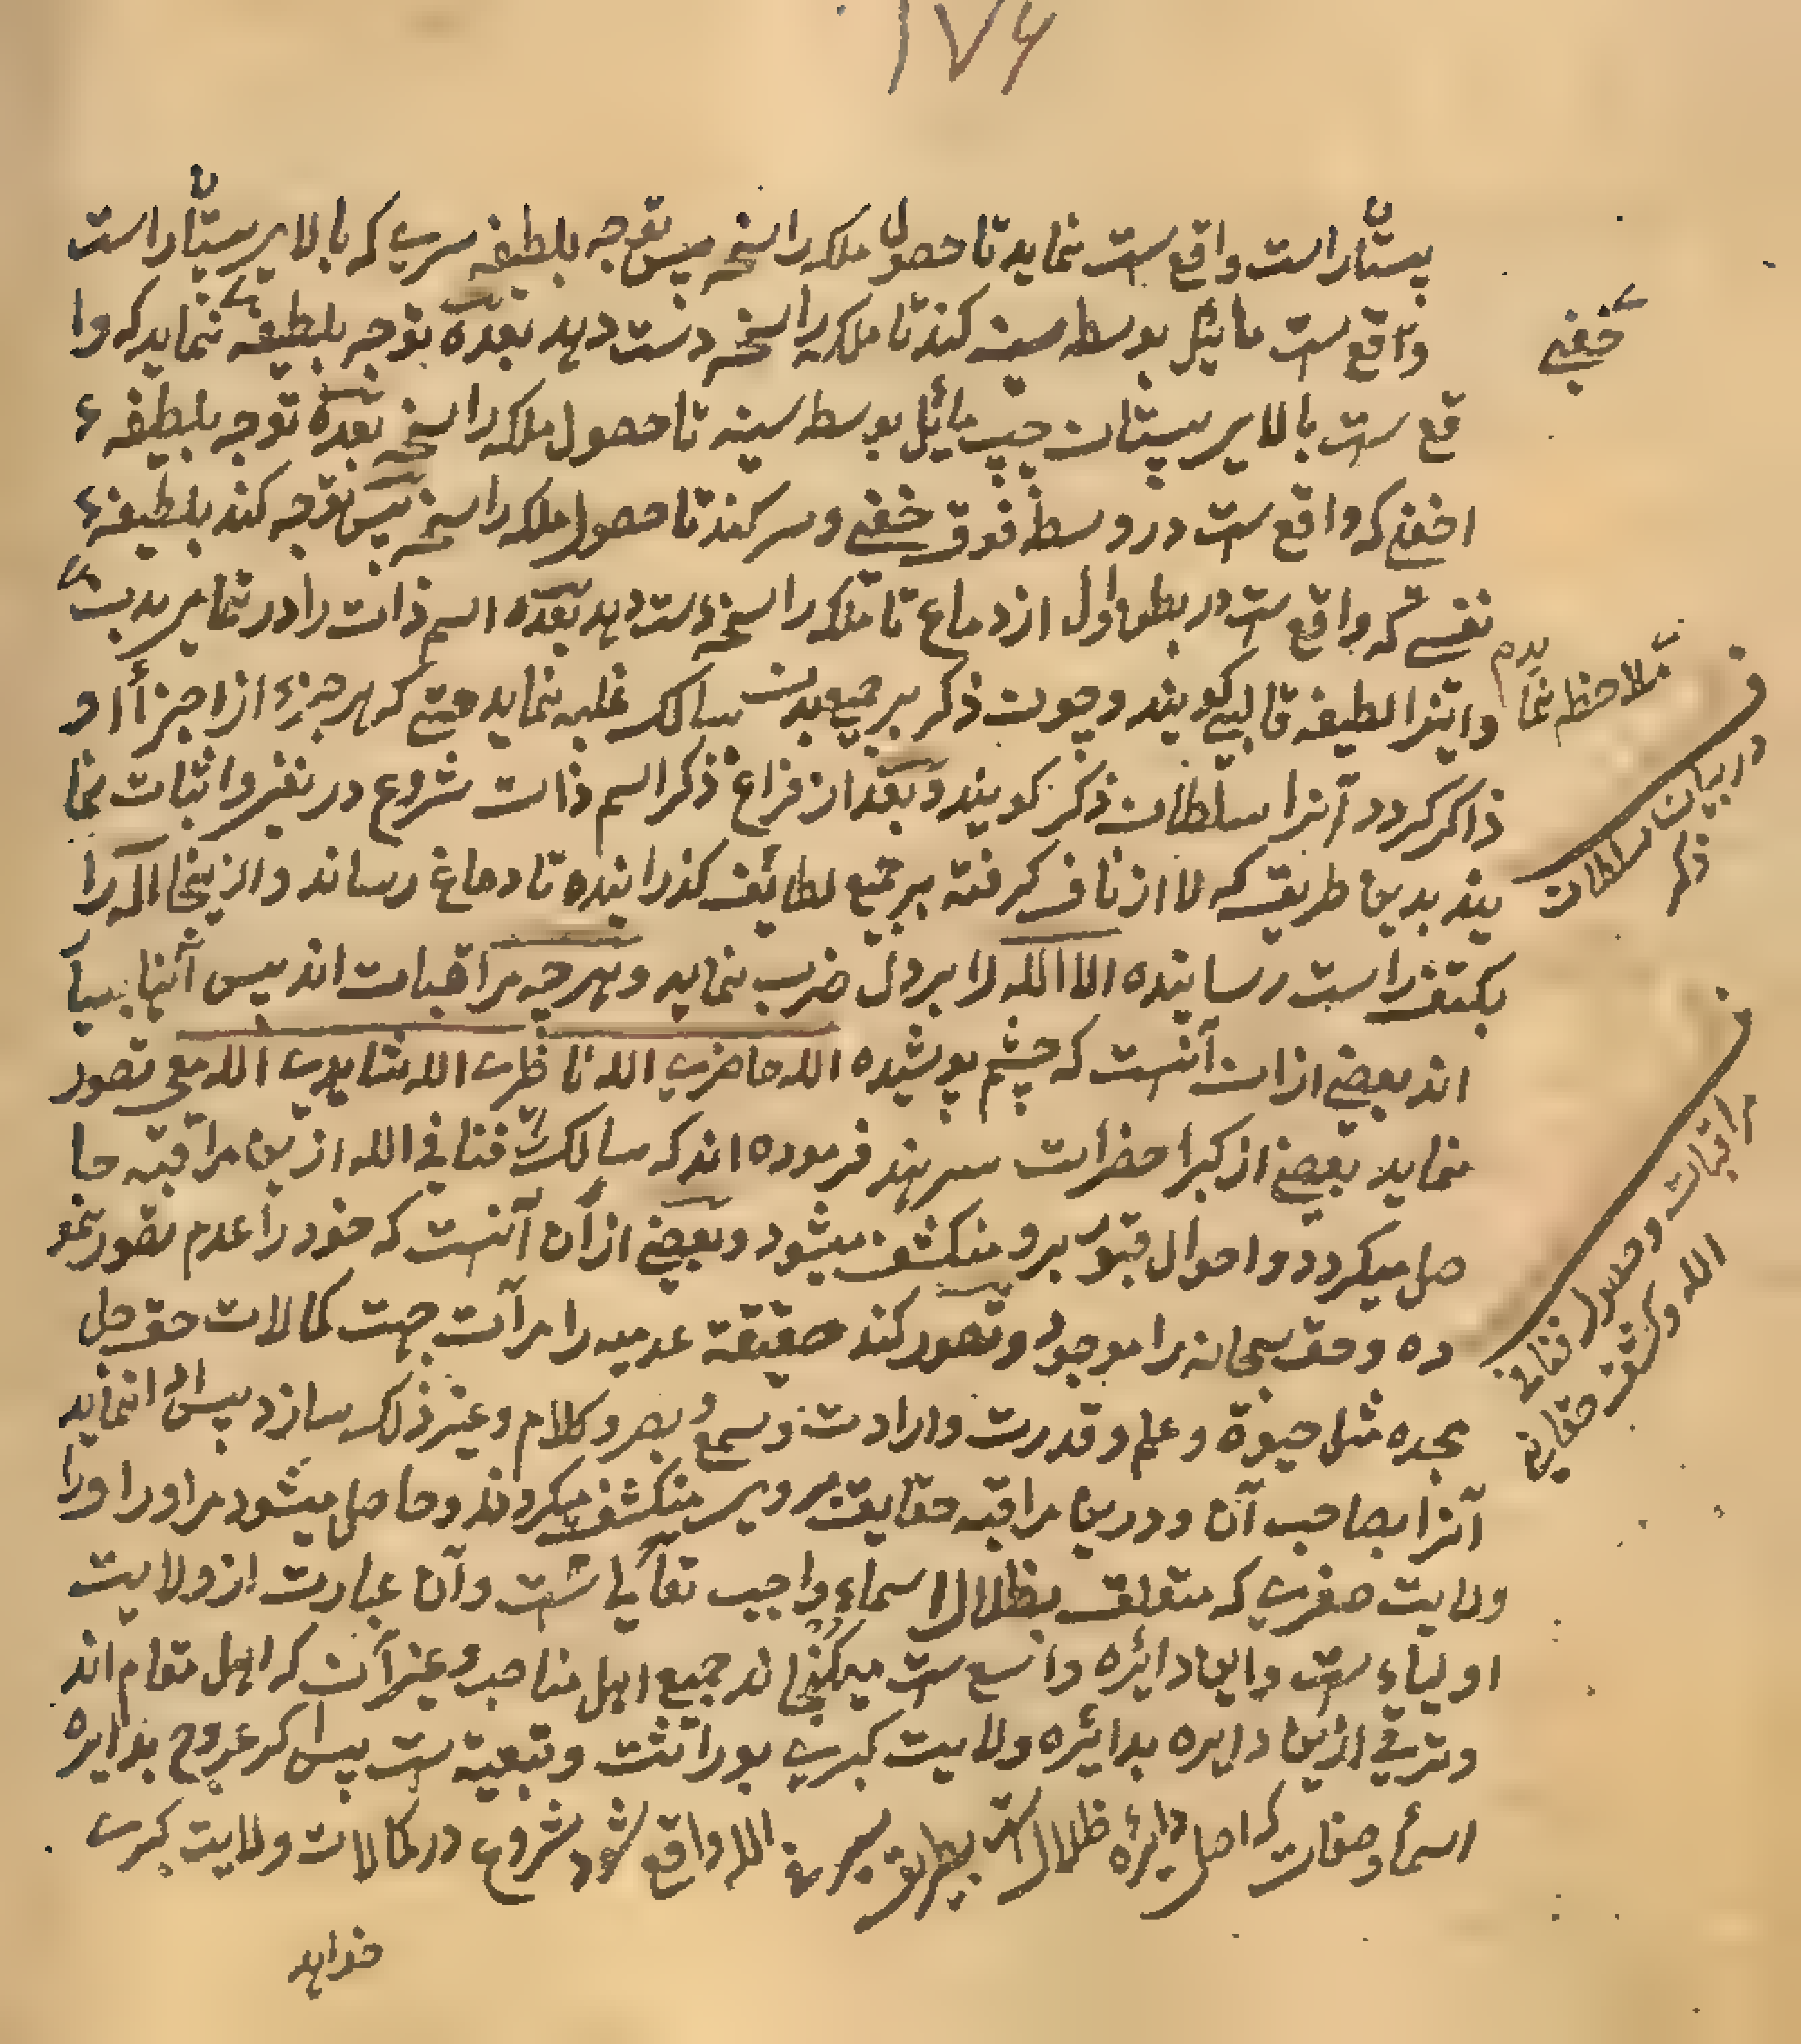 ۱۷۶
پستان راست واقع ست نماید تا حصول ملکه راسخه پس توجه بلطیفه سری که بالای پستان راست
واقع ست مائل بوسط سینه کند تا ملکه راسخه دست دهد بعده توجه بلطیفه نماید که وا
خفی
قع ست بالای پستان چپ مائل بوسط سینه تا حصول ملکه راسخه بعده توجه بلطیفهء
اخفی که واقع ست در وسط فوق خفی و سر کند تا حصول ملکه راسخه پس توجه کند بلطیفهء
نفسی که واقع ست در بطن اول از دماغ تا ملکه راسخه دست دهد بعده اسم ذات را در تمامی بدن
ملاحظه نما
واینرا لطیفه قالبی گویند و چون ذکر بر جمیع بدن سالک غلبه نماید حتی که هر جزء از اجزأ او
ذاکر گردد آنرا سلطان ذکر گویند و بعد از فراغ ذکر اسم ذات شروع در نفی و اثبات نما
در بیان سلطان
ذکر
یند بدین طریق که لا از ناف گرفته بر جمیع لطائف گذرانیده تا دماغ رساند و از ینجا اله را
بکتف راست رسانیده الا الله را بر دل ضرب نماید و هرچه مراقبات اند پس آنها بسیا
اند بعضی ازان آنست که چشم پوشیده الله حاضری الله ناظری الله شاهدی الله معی تصور
نماید بعضی از کبرا حضرات سرهند فرموده اند که سالک را فنا فی الله ازین مراقبه حا
مراقبات و حصول فنا فی
الله و کشف حقایق
صل میگردد و احوال قبور برو منکشف میشود و بعضی ازان آنست که خود را عدم تصور نمو
ده و حق سبحانه را موجود و تصور کند حقیقة عدمیه را مرآت جهت کمالات حق جل
مجده مثل حیوة و علم و قدرت و ارادت و سمع و بصر و کلام و غیر ذلک سازد پس ادا نماید
آنرا بصاحب آن و درین مراقبه حقایق بر وی منکشف میگردند و حاصل میشود مر اورا اورا
ولایت صغری که متعلق بظلال اسماء واجب تعالی است و آن عبارت از ولایت
اولیاء ست و این دائره واسع ست میگنجاند جمیع اهل مناصب و غیر آن که اهل مقام اند
و ترقی ازین دایره بدائره ولایت کبری بوراثت و تبعیة ست پس اگر عروج بدایره
اسمأ و صفات که اصل دایره ظلال است بطریق سیر فی الله واقع شود شروع در کمالات ولایت کبری
خواهد